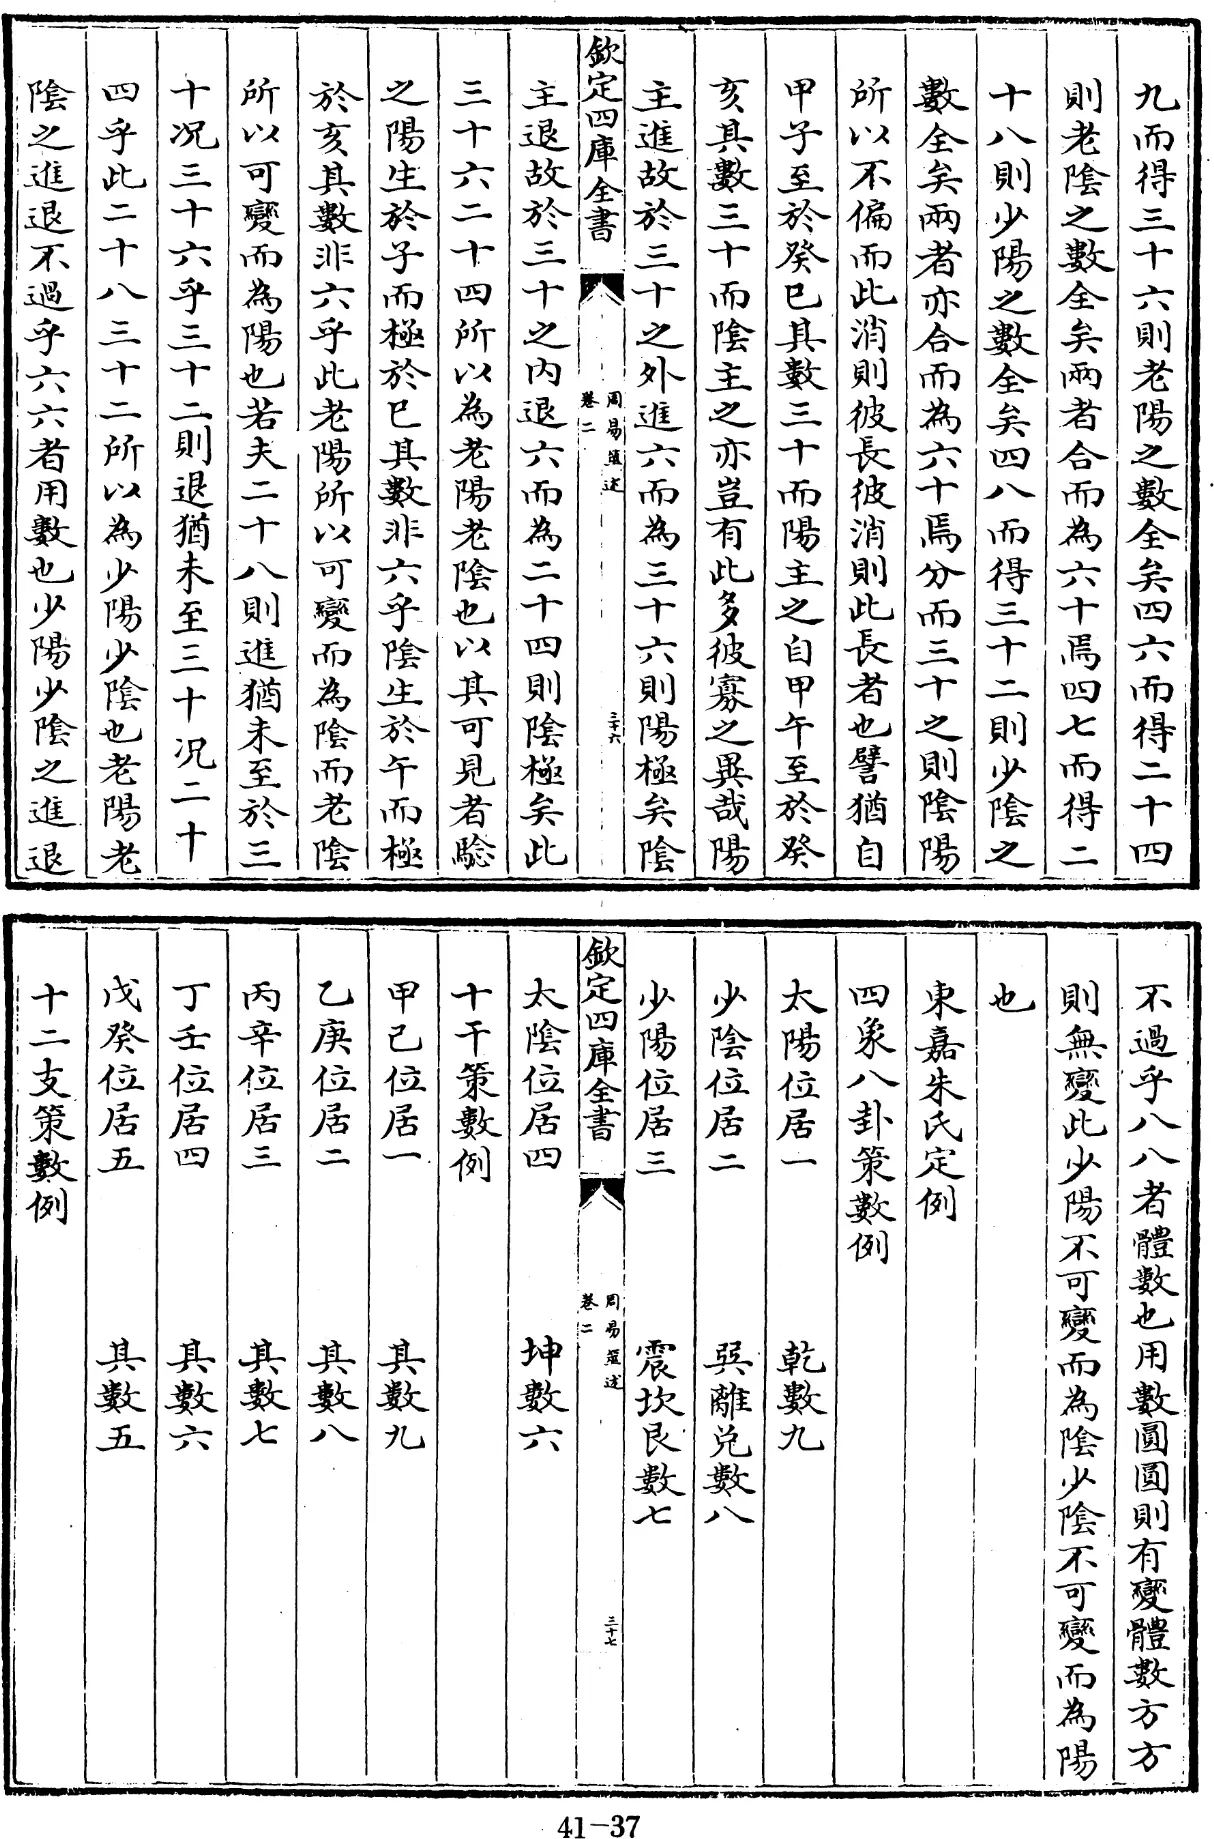 九而得三十六則老陽之數全矣四六而得二十四
則老陰之數全矣兩者合而為六十焉四七而得二
十八則少陽之數全矣四八而得三十二則少陰之
數全矣兩者亦合而為六十焉分而三十之則陰陽
所以不偏而此消則彼長彼消則此長者也譬猶自
甲子至於癸巳其數三十而陽主之自甲午至於癸
亥其數三十而陰主之亦豈有此多彼寡之異哉陽
主進故於三十之外進六而為三十六則陽極矣陰
欽定四庫全書
周易
卷二
三十六
主退故於三十之内退六而為二十四則陰極矣此
三十六二十四所以為老陽老陰也以其可見者驗
之陽生於子而極於巳其數非六乎陰生於午而極
於亥其數非六乎此老陽所以可變而為陰而老陰
所以可變而為陽也若夫二十八則進猶未至於三
十况三十六乎三十二則退猶未至三十况二十
四乎此二十八三十二所以為少陽少陰也老陽老
陰之進退不過乎六六者用數也少陽少陰之進退
不過乎八八者體數也用數圓圓則有變體數方方
則無變此少陽不可變而為陰少陰不可變而為陽
也
東嘉朱氏定例
四象八卦策數例
太陽位居一 乾數九
少陰位居二 巽離兌數八
少陽位居三 震坎艮數七
欽定四庫全書
周易
卷二
三十七
太陰位居四 坤數六
十干策數例
甲己位居一 其數九
乙庚位居二 其數八
丙辛位居三 其數七
丁壬位居四 其數六
戊癸位居五 其數五
十二支策數例
41-37